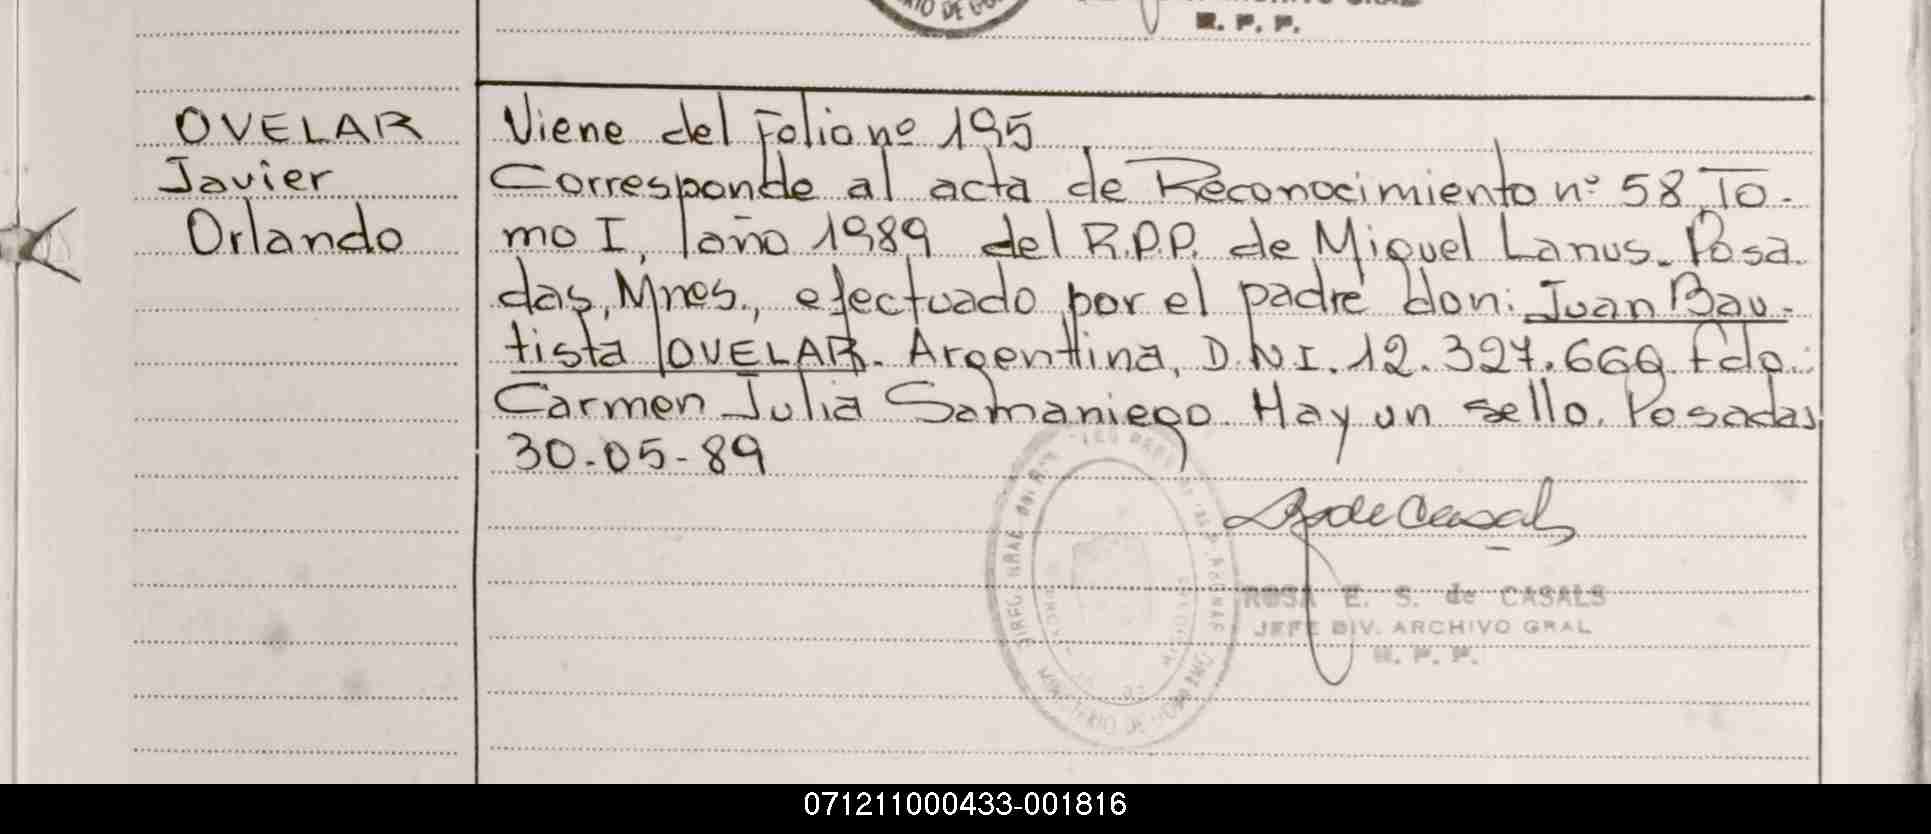 R. P. P.
OVELAR
Javier
Orlando
Viene del Folio nº 195
Corresponde al acta de Reconocimiento nº 58, To-
mo I, año 1989 del R.P.P. de Miguel Lanus. Posa-
das, Mnes., efectuado por el padre don: Juan Bau-
tista OVELAR. Argentina, D.N.I. 12.327.669. fdo:
Carmen Julia Samaniego. Hay un sello. Posadas
30-05-89
ROSA E. S. de CASALS
JEFE DIV. ARCHIVO GRAL
R. P. P.
071211000433-001816